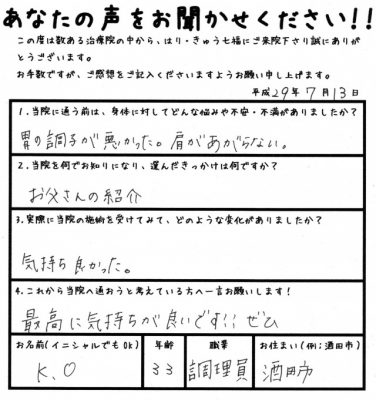 あなたの声をお聞かせください!!
この度は数ある治療院の中から、はり・きゅう七福にご来院下さり誠にありが
とうございます。
お手数ですが、ご感想をご記入くださいますようお願い申し上げます。
平成29年 7月13日
1.当院に通う前は、身体に対してどんな悩みや不安・不満がありましたか?
胃の調子が悪かった。肩があがらない。
2.当院を何でお知りになり、選んだきっかけは何ですか?
お父さんの紹介
3.実際に当院の施術を受けてみて、どのような変化がありましたか?
気持ち良かった。
4.これから当院へ通おうと考えている方へ一言お願いします!
最高に気持ちが良いです!! ぜひ
お名前(イニシャルでもOK) 年齢 職業 お住まい(例:酒田市)
K.O 33 調理員 酒田市